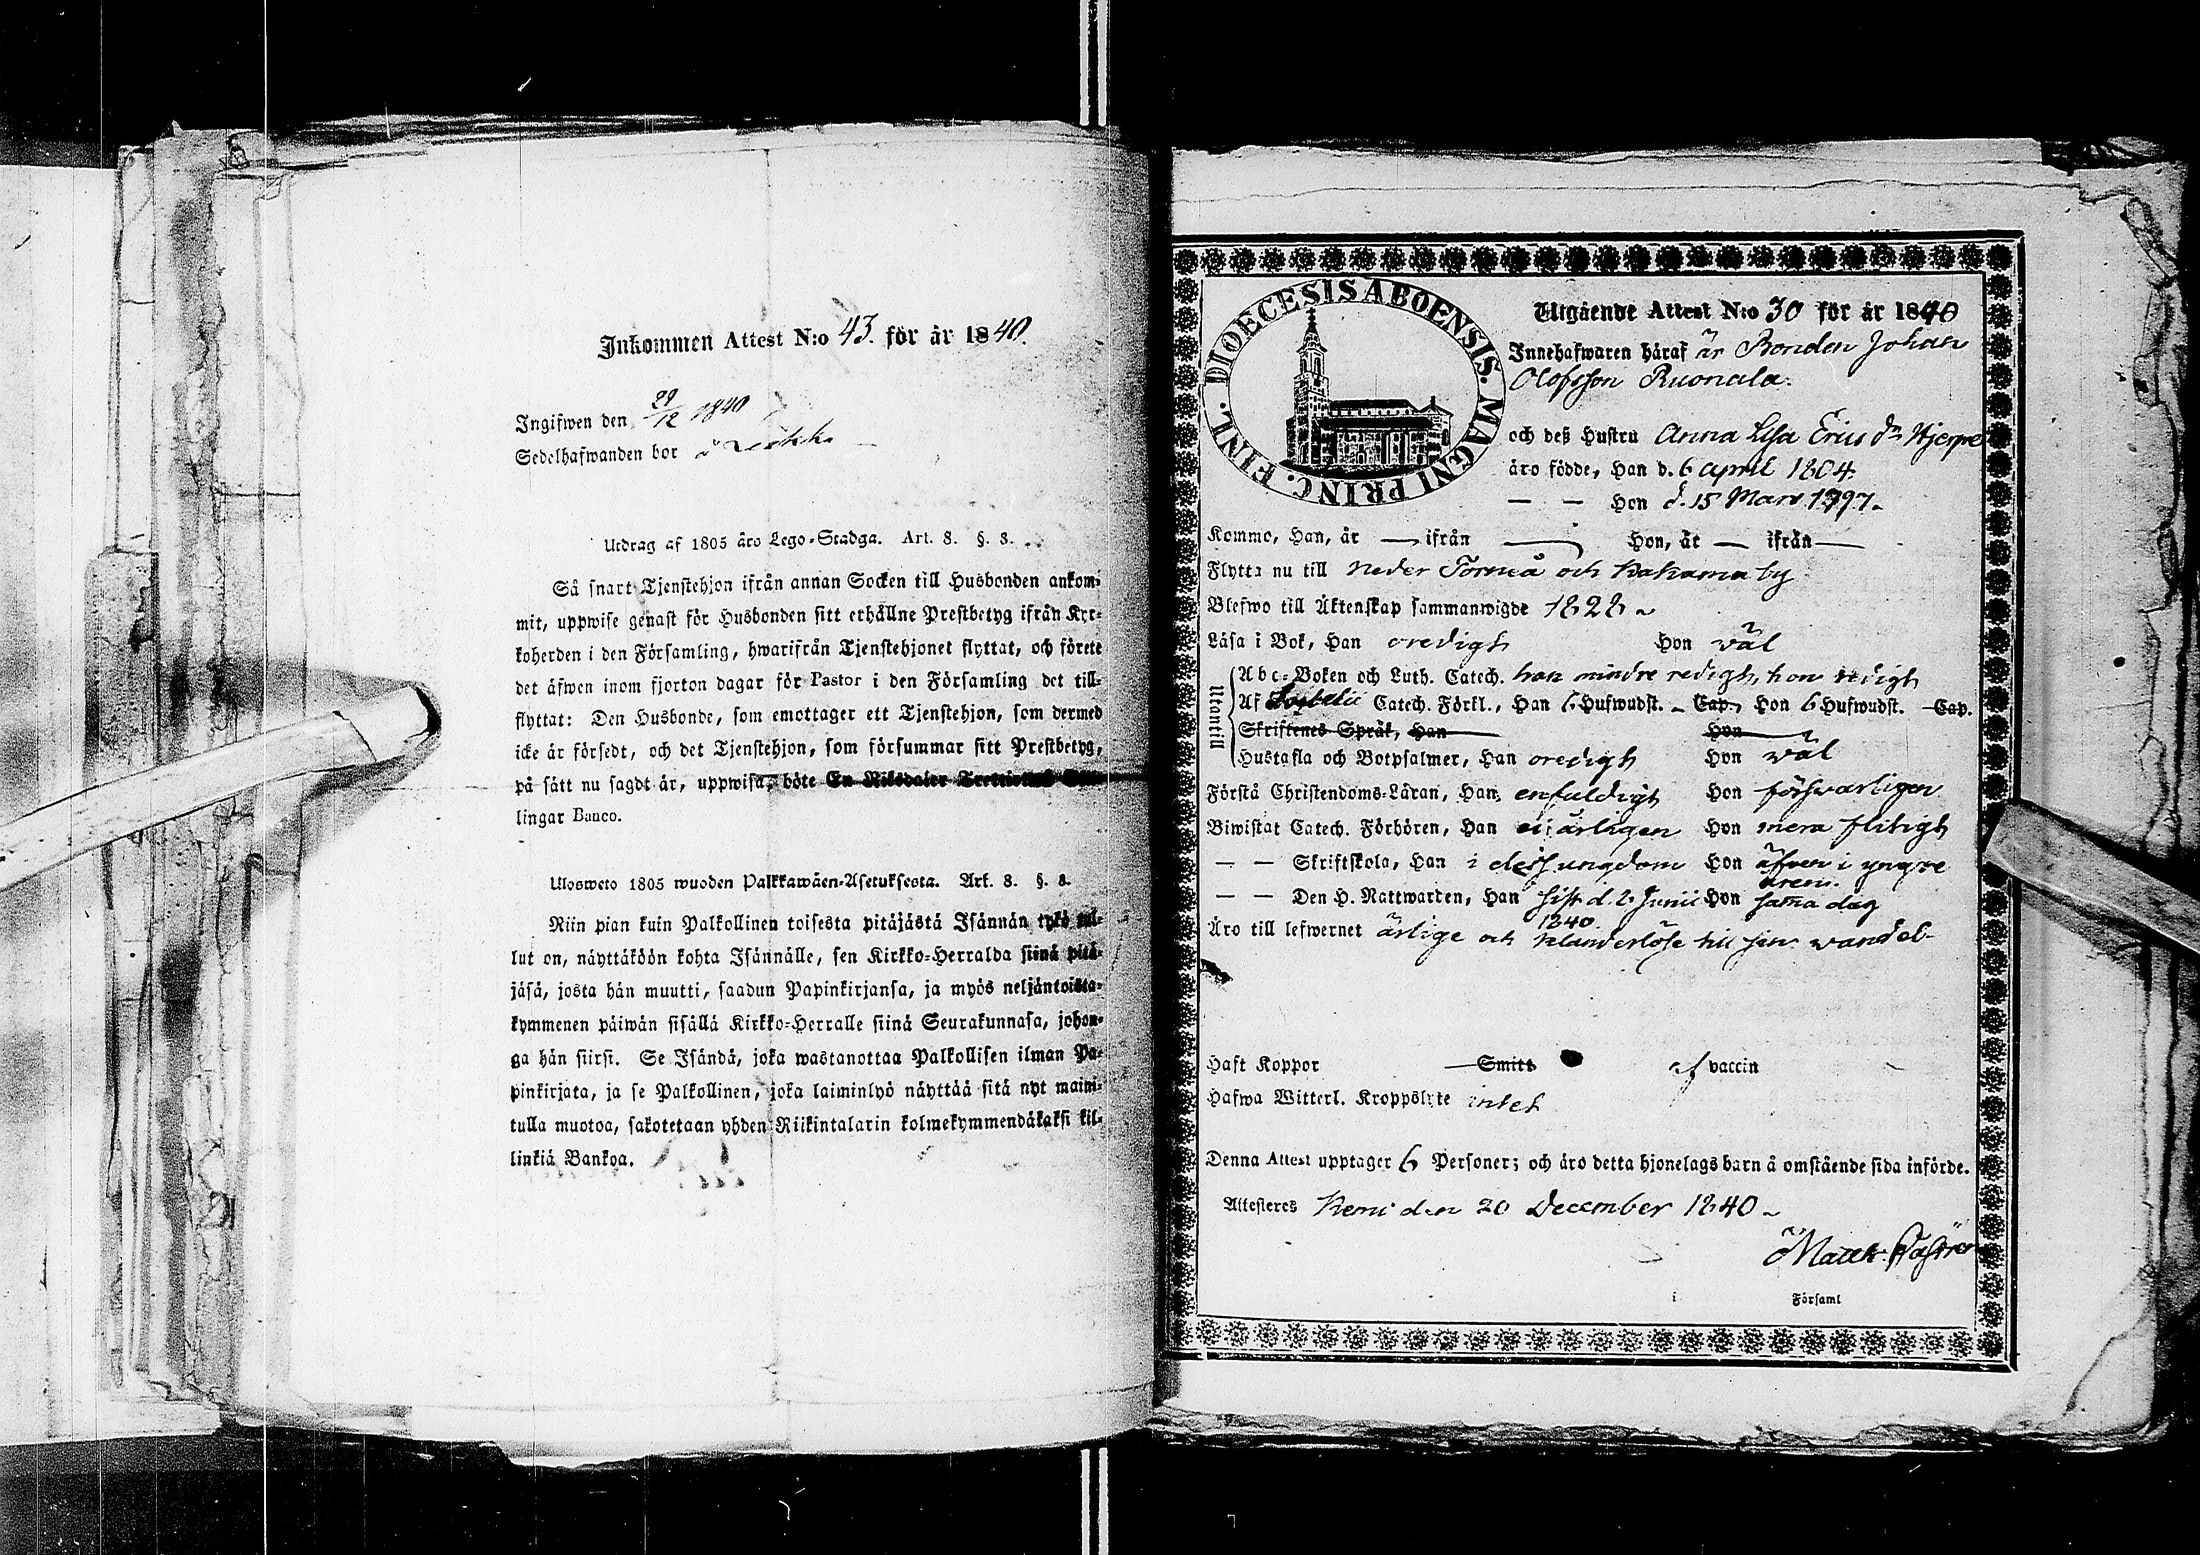 Inkommen Attest N:o 43. för år 1840.
Ingifwen den 29/12 1840
Sedelhafwanden bor
Utdrag af 1805 års Lego-Stadga. Art. 8. §. 3.
Så snart Tjenstehjon ifrån annan Socken till Husbonden ankom-
mit, uppwise genast för Husbonden sitt erhållne Prestbetyg ifrån Kyr-
koherden i den Församling, hwarifrån Tjenstehjonet flyttat, och förete
det äfwen inom fjorton dagar för Pastor i den Församling det till-
flyttat: Den Husbonde, som emottager ett Tjenstehjon, som dermed
icke är försedt, och det Tjenstehjon, som försummar sitt Prestbetyg,
på sätt nu sagdt är, uppwisa, böte En Riksdaler Trettiotwå Skil-
lingar Banco.
Ulosweto 1805 wuoden Palkkawäen-Asetuksesta. Art. 8. §. 3.
Niin pian kuin Palkollinen toisesta pitäjästä Isännän tykö tul-
lut on, näyttäköön kohta Isännälle, sen Kirkko-Herralda siinä pitä-
jäsä, josta hän muutti, saadun Papinkirjansa, ja myös neljäntoista-
kymmenen päiwän sisällä Kirkko-Herralle siinä Seurakunnasa, johon-
ga hän siirsi. Se Isändä, joka wastanottaa Palkollisen ilman Pa-
pinkirjata, ja se Palkollinen, joka laiminlyö näyttää sitä nyt maini-
tulla muotoa, sakotetaan yhden Riikintalarin kolmekymmendäkaksi kil-
linkiä Bankoa.
DIOECESIS ABOENSIS. MAGNI PRINC. FINL.
Utgående Attest N:o 30 för år 1840
Innehafwaren häraf är Bonden Johan
Olofsson Ruonala.
och deß Hustru Anna Lisa Ericsdr Hjerpe
äro födde, Han d. 6 April 1804.
— — Hon d. 15 Mars 1797.
Kommo, Han, år — ifrån — Hon, år — ifrån —
Flytta nu till Neder Torneå och Kakama by
Blefwo till Äktenskap sammanwigde 1828
Läsa i Bok, Han oredigt Hon väl
Utantill
Abc-Boken och Luth. Catech. han mindre redigt, hon redigt
Af Svebelii Catech. Förkl., Han 6 Hufwudst. — Cap., Hon 6 Hufwudst. — Cap.
Skriftenes Språk, Han — Hon —
Hustafla och Botpsalmer, Han oredigt Hon väl
Förstå Christendoms-Läran, Han enfaldigt Hon försvarligen
Biwistat Catech. Förhören, Han ej årligen Hon mera flitigt
— — Skriftskola, Han i dess ungdom Hon äfven i yngre
åren.
— — Den H. Nattwarden, Han sist d. 2 Junii Hon samma dag
1840.
Äro till lefwernet ärlige och klanderlöse till sin vandel.
Haft Koppor — Smitt af vaccin
Hafwa Witterl. Kroppslyte intet
Denna Attest upptager 6 Personer; och äro detta hjonelags barn å omstående sida införde.
Attesteres Kemi den 20 December 1840
i Församl